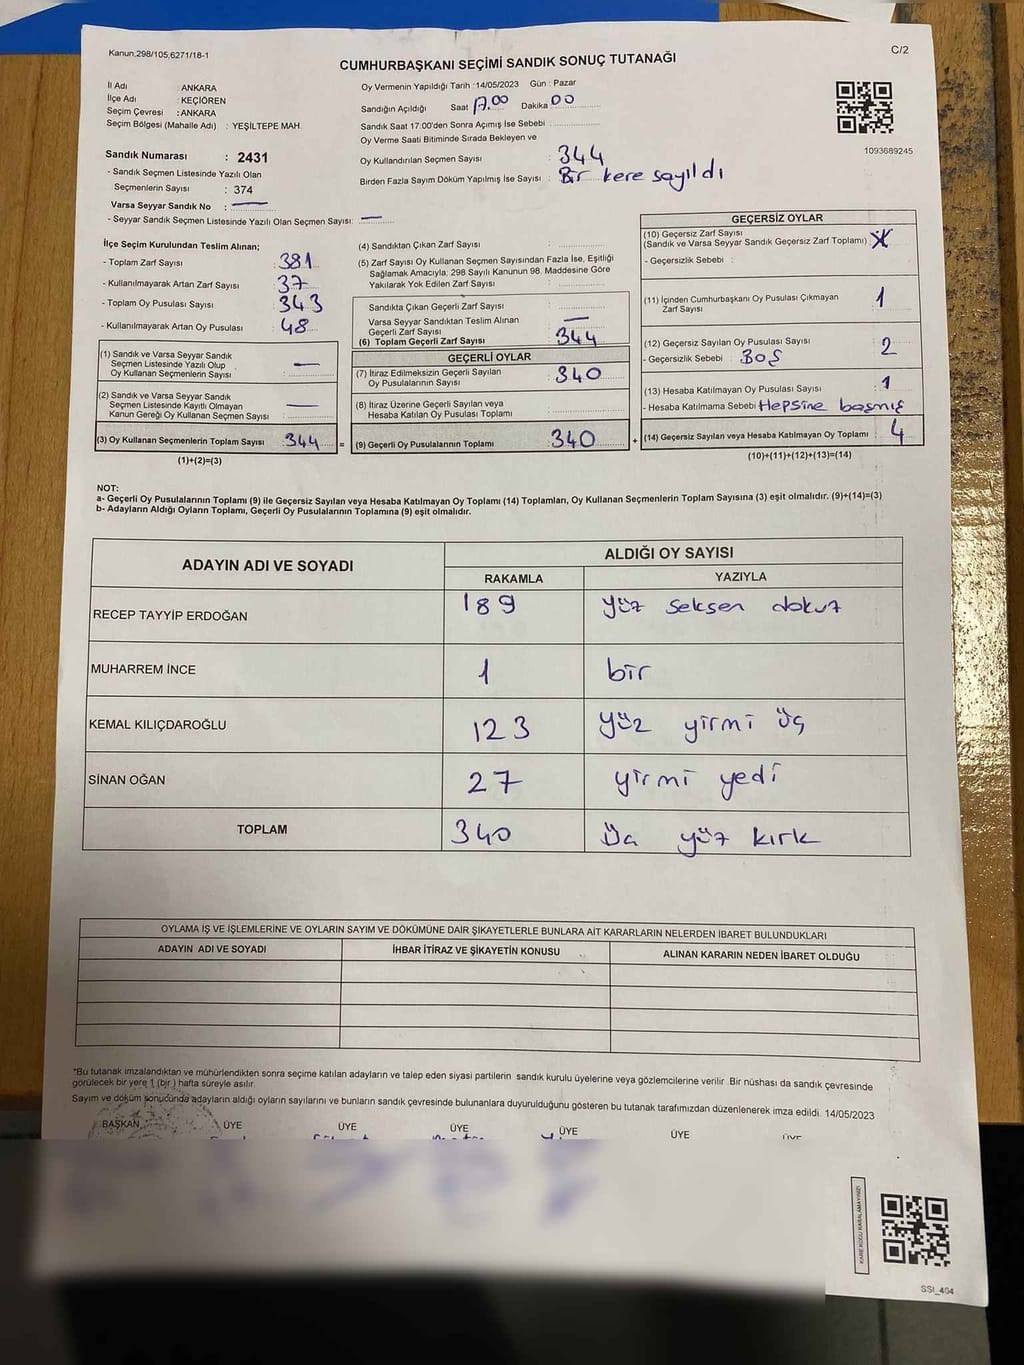 Kanun.298/105,6271/18-1
C/2
CUMHURBAŞKANI SEÇİMİ SANDIK SONUÇ TUTANAĞI
İl Adı : ANKARA
İlçe Adı : KEÇİÖREN
Seçim Çevresi : ANKARA
Seçim Bölgesi (Mahalle Adı) : YEŞİLTEPE MAH.
Sandık Numarası : 2431
- Sandık Seçmen Listesinde Yazılı Olan
Seçmenlerin Sayısı : 374
Varsa Seyyar Sandık No : —
- Seyyar Sandık Seçmen Listesinde Yazılı Olan Seçmen Sayısı: —
Oy Vermenin Yapıldığı Tarih :14/05/2023 Gün : Pazar
Sandığın Açıldığı Saat 17.00 Dakika 00
Sandık Saat 17:00'den Sonra Açımış İse Sebebi :
Oy Verme Saati Bitiminde Sırada Bekleyen ve
Oy Kullandırılan Seçmen Sayısı : 344
Birden Fazla Sayım Döküm Yapılmış İse Sayısı : Bir kere sayıldı
1093689245
İlçe Seçim Kurulundan Teslim Alınan;
- Toplam Zarf Sayısı : 381
- Kullanılmayarak Artan Zarf Sayısı : 37
- Toplam Oy Pusulası Sayısı : 343
- Kullanılmayarak Artan Oy Pusulası : 48
(1) Sandık ve Varsa Seyyar Sandık
Seçmen Listesinde Yazılı Olup
Oy Kullanan Seçmenlerin Sayısı : —
(2) Sandık ve Varsa Seyyar Sandık
Seçmen Listesinde Kayıtlı Olmayan
Kanun Gereği Oy Kullanan Seçmen Sayısı : —
(3) Oy Kullanan Seçmenlerin Toplam Sayısı : 344 =
(1)+(2)=(3)
(4) Sandıktan Çıkan Zarf Sayısı :
(5) Zarf Sayısı Oy Kullanan Seçmen Sayısından Fazla İse, Eşitliği
Sağlamak Amacıyla, 298 Sayılı Kanunun 98. Maddesine Göre
Yakılarak Yok Edilen Zarf Sayısı :
Sandıkta Çıkan Geçerli Zarf Sayısı :
Varsa Seyyar Sandıktan Teslim Alınan
Geçerli Zarf Sayısı : —
(6) Toplam Geçerli Zarf Sayısı : 344
GEÇERLİ OYLAR
(7) İtiraz Edilmeksizin Geçerli Sayılan
Oy Pusulalarının Sayısı : 340
(8) İtiraz Üzerine Geçerli Sayılan veya
Hesaba Katılan Oy Pusulası Toplamı :
(9) Geçerli Oy Pusulalarının Toplamı : 340 +
GEÇERSİZ OYLAR
(10) Geçersiz Zarf Sayısı
(Sandık ve Varsa Seyyar Sandık Geçersiz Zarf Toplamı) :
- Geçersizlik Sebebi :
(11) İçinden Cumhurbaşkanı Oy Pusulası Çıkmayan
Zarf Sayısı : 1
(12) Geçersiz Sayılan Oy Pusulası Sayısı : 2
- Geçersizlik Sebebi : BOŞ
(13) Hesaba Katılmayan Oy Pusulası Sayısı : 1
- Hesaba Katılmama Sebebi : Hepsine basmış
(14) Geçersiz Sayılan veya Hesaba Katılmayan Oy Toplamı : 4
(10)+(11)+(12)+(13)=(14)
NOT:
a- Geçerli Oy Pusulalarının Toplamı (9) ile Geçersiz Sayılan veya Hesaba Katılmayan Oy Toplamı (14) Toplamları, Oy Kullanan Seçmenlerin Toplam Sayısına (3) eşit olmalıdır. (9)+(14)=(3)
b- Adayların Aldığı Oyların Toplamı, Geçerli Oy Pusulalarının Toplamına (9) eşit olmalıdır.
ADAYIN ADI VE SOYADI
ALDIĞI OY SAYISI
RAKAMLA YAZIYLA
RECEP TAYYİP ERDOĞAN 189 yüz seksen dokuz
MUHARREM İNCE 1 bir
KEMAL KILIÇDAROĞLU 123 yüz yirmi üç
SİNAN OĞAN 27 yirmi yedi
TOPLAM 340 Üç yüz kırk
OYLAMA İŞ VE İŞLEMLERİNE VE OYLARIN SAYIM VE DÖKÜMÜNE DAİR ŞİKAYETLERLE BUNLARA AİT KARARLARIN NELERDEN İBARET BULUNDUKLARI
ADAYIN ADI VE SOYADI İHBAR İTİRAZ VE ŞİKAYETİN KONUSU ALINAN KARARIN NEDEN İBARET OLDUĞU
*Bu tutanak imzalandıktan ve mühürlendikten sonra seçime katılan adayların ve talep eden siyasi partilerin sandık kurulu üyelerine veya gözlemcilerine verilir. Bir nüshası da sandık çevresinde
görülecek bir yere 1 (bir) hafta süreyle asılır.
Sayım ve döküm sonucunda adayların aldığı oyların sayılarını ve bunların sandık çevresinde bulunanlara duyurulduğunu gösteren bu tutanak tarafımızdan düzenlenerek imza edildi. 14/05/2023
BAŞKAN ÜYE ÜYE ÜYE ÜYE ÜYE ÜYE
KARE KODU KARALAMAYINIZ!
SSI_404